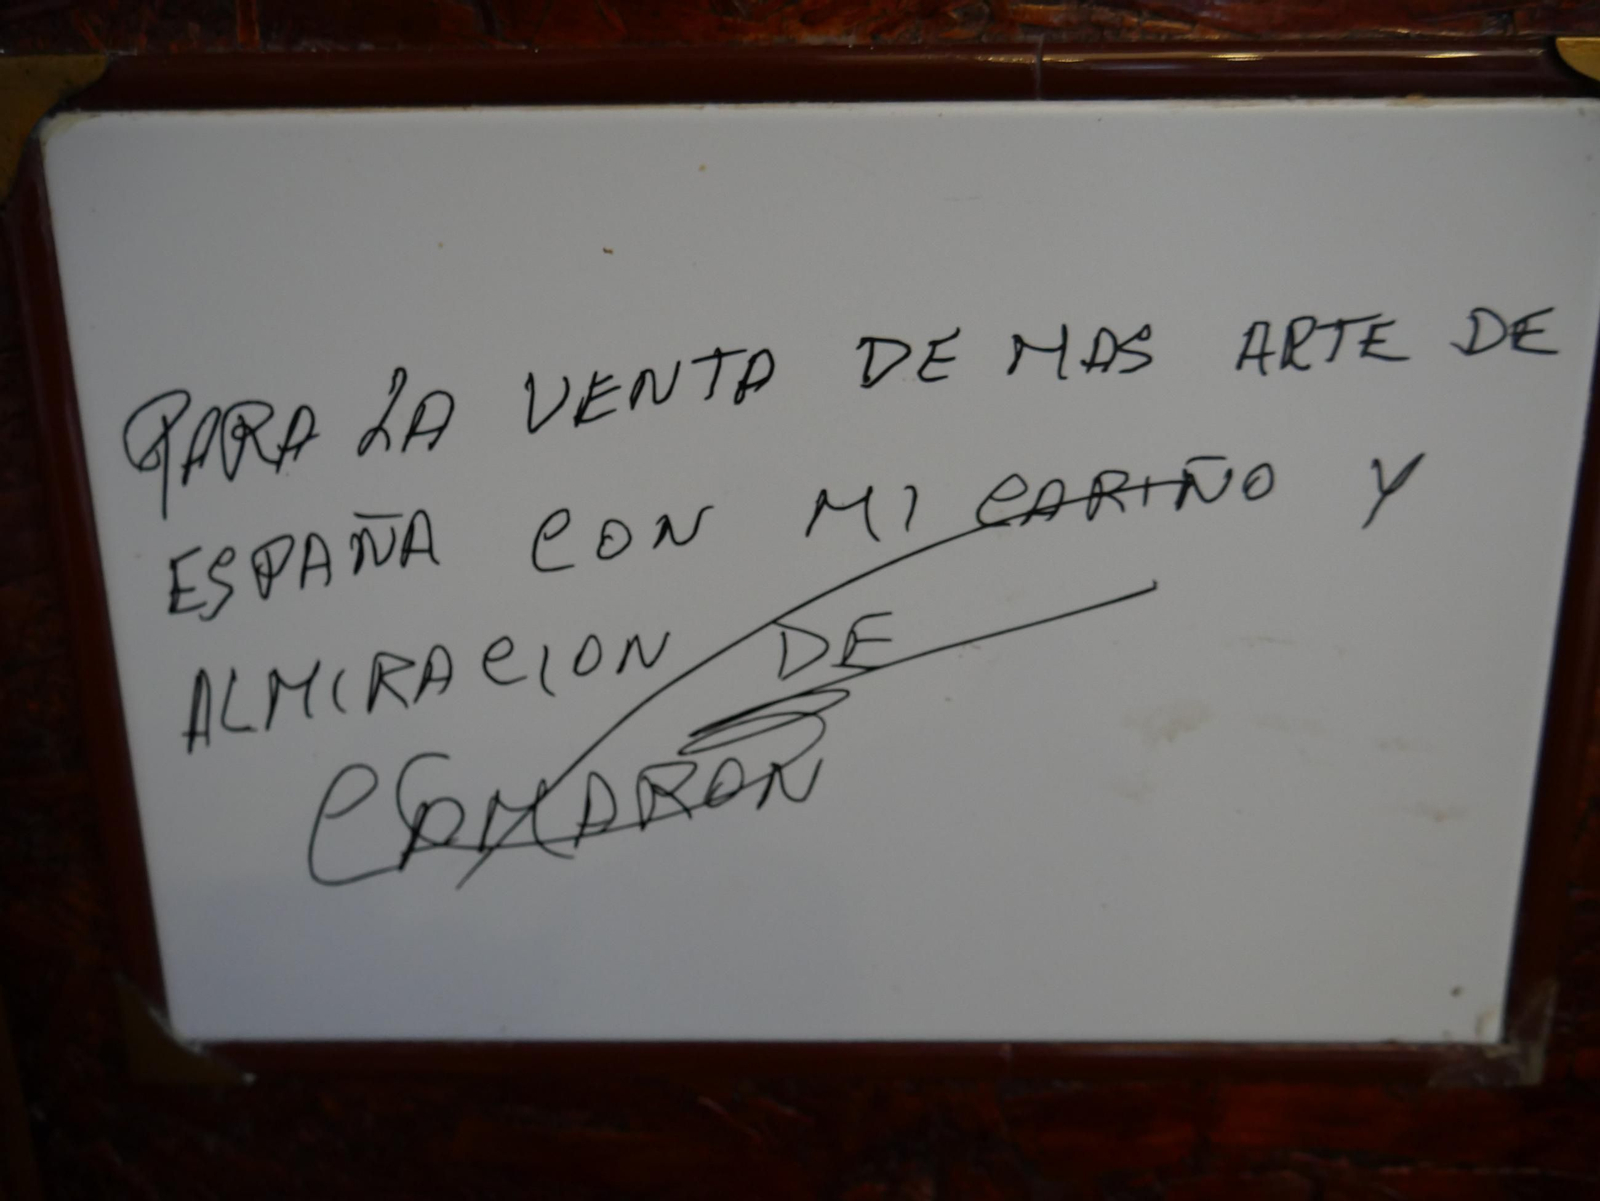 PARA LA VENTA DE MAS ARTE DE
ESPAÑA CON MI CARIÑO Y
ALMIRACION DE
CAMARON